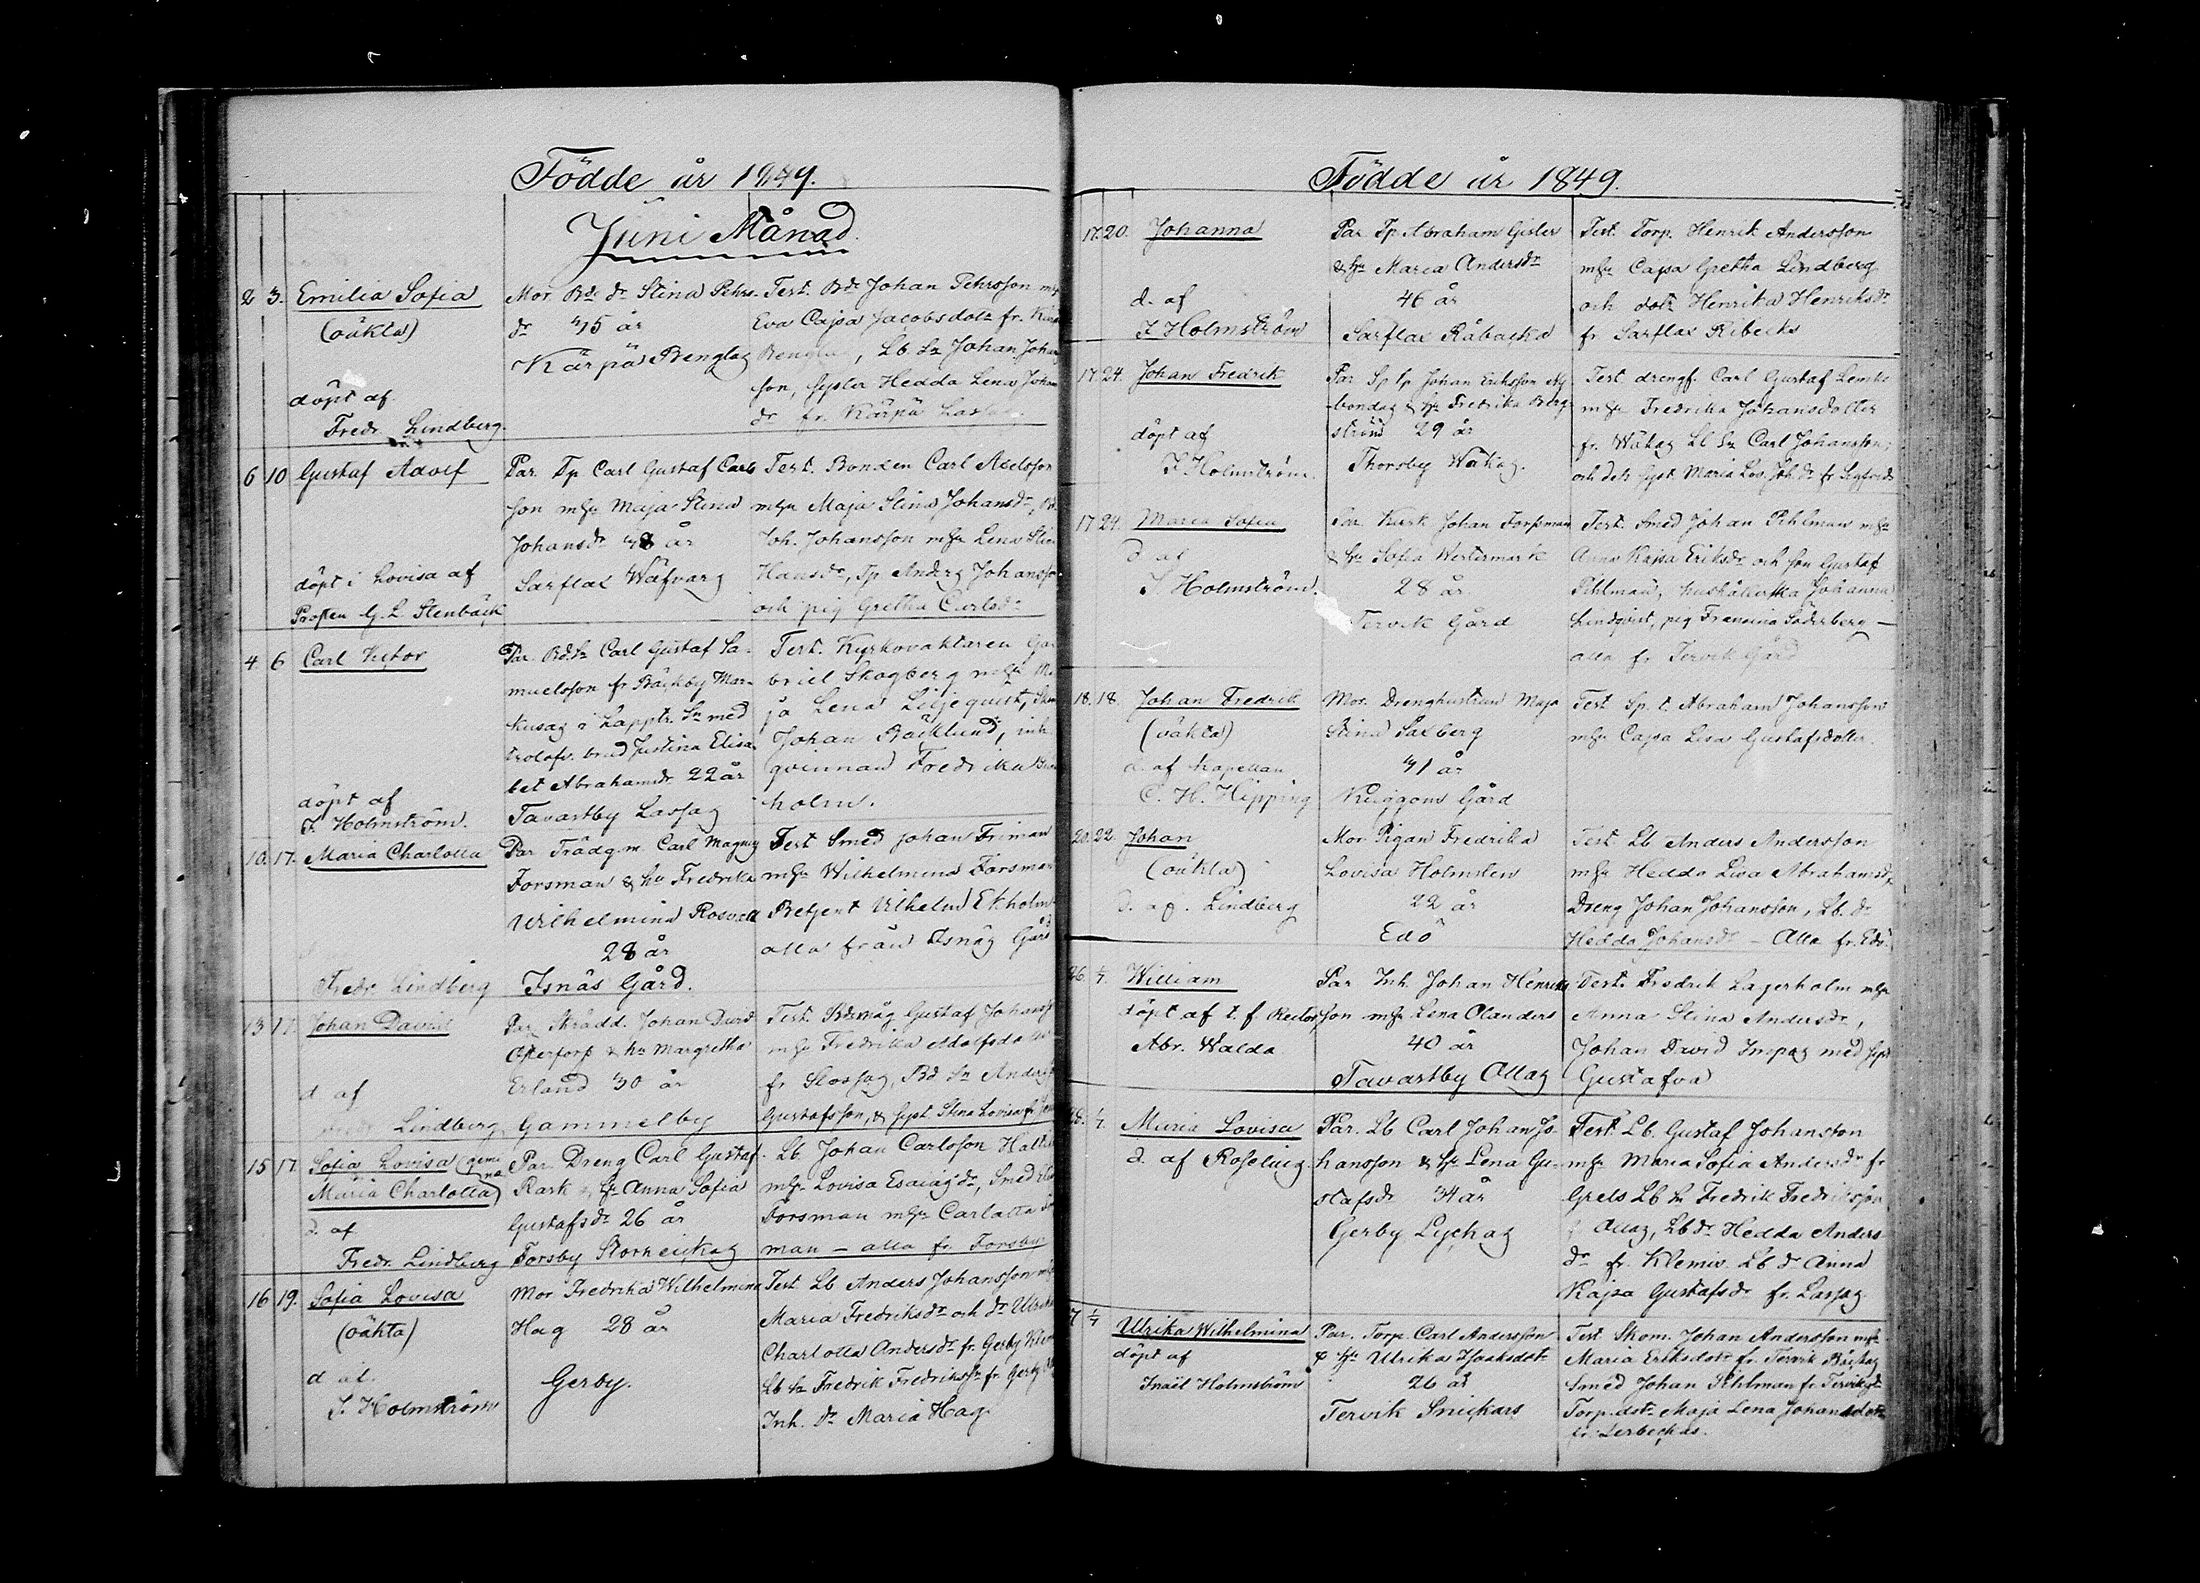 Födde år 1849.
Juni Månad.
2 3. Emilia Sofia
(oäkta)
döpt af
Fredr. Lindberg.
Mor Bde dr Stina Pehrs-
dr 45 år
Kärpä Benglas
Test. Bde Johan Pehrsson
Eva Cajsa Jacobsdotr fr.
Lb. Sn Johan
son, syster Hedda Lena
dr fr. Kärpä Lassas.
6 10 Gustaf Adolf
döpt i Lovisa af
Prosten G. L. Stenbäck
Par. Tp Carl Gustaf Carls
son mhu Maja Stina
Johansdr 48 år
Sarflax Wäfvars
Test. Bonden Carl Axelsson
mhu Maja Stina Johansdr,
Joh. Johansson mhu Lena
Hansdr, Tp Anders
och pig Gretha Carlsdr
4. 6 Carl Victor
döpt af
I. Holmström.
Par. Bd.Sn Carl Gustaf Sa-
muelsson fr Bäckby Mar-
kusas i Lapptr. Sn med
trolofv. brud Justina Elisa
bet Abrahamsdr 22 år
Tavastby Lassas
Test. Kyrkovaktaren Ga-
briel Skogberg mhu Ma
ja Lena Liljequist,
Johan Bäcklund, inh.
qvinnan Fredrika
holm.
10. 17. Maria Charlotta
Fredr. Lindberg
Par Trädg.m. Carl Magnus
Forsman & hu Fredrika
Wilhelmina Rosvall
28 år
Isnäs Gård.
Test Smed Johan Friman
mhu Wilhelmina Forsman
Betjent Vilhelm Ekholm
alla från Isnäs Gård
13 17. Johan David
d af
Lindberg
Par Skrädd. Johan David
& hu Margretha
Erland 30 år
Gammelby
Test. Bdemåg Gustaf
mhu Fredrika
Bd Sn Anders
Gustafsson, & Syst Stina Lovisa fr
15 17. Sofia Lovisa (gemi
na
Maria Charlotta)
d. af
Fredr. Lindberg
Par Dreng Carl Gustaf
Rask & hu Anna Sofia
Gustafsdr 26 år
Forsby Storneickas
Lb Johan Carlsson
mhu Lovisa Esaiasdr, Smed
Forsman mhu Carlotta
man – alla fr. Forsby
16 19. Sofia Lovisa
(oäkta)
d af
I. Holmström
Mor Fredrika Wilhelmina
Hag 28 år
Gerby.
Test Lb Anders Johansson
Maria Fredriksdr och dr
Charlotta Andersdr fr. Gerby
Lb Sn Fredrik Fredrikssn fr Gerby
Inh. dr Maria Hag
Födde år 1849.
17. 20. Johanna
d. af
I Holmström
Par Tp Abraham Gisler
& hu Maria Andersdr
46 år
Sarflax Råbacka
Test. Torp. Henrik Andersson
mhu Cajsa Gretha Lindberg
och dotr Henrika Henriksdr
fr Sarflax Ribecks
17. 24. Johan Fredrik
döpt af
I. Holmström.
Par Sp tp Johan Eriksson Ny-
bondas & hu Fredrika Berg-
ström 29 år
Thorsby Wäkas.
Test drengf. Carl Gustaf
mhu Fredrika Johansdotter
fr. Wäkas Lb Sn Carl Johansson,
och dess syst Maria Lov. Joh.dr fr Sigfreds
17 24. Maria Sofia
d af
I Holmström.
Par. Kusk Johan Forssman
& hu Sofia Westermark
28 år
Tervik Gård
Test. Smed Johan Pihlman mhu
Anna Kajsa Eriksdr och son Gustaf
Pihlman, hushållerska Johanna
Lindqvist, pig Fransina Söderberg –
alla fr Tervik Gård
18. 18. Johan Fredrik
(oäkta)
d. af Kapellan
C. H. Hipping
Mor. Drenghustrun Maja
Stina Saxberg
41 år
Kuggom Gård
Test Sp. t. Abraham Johansson
mhu Cajsa Lisa Gustafsdotter.
20. 22. Johan
(oäkta)
d. af. Lindberg
Mor Pigan Fredrika
Lovisa Holmsten
22 år
Edö
Test Lb Anders Andersson
mhu Hedda Lisa Abrahamsdr,
Dreng Johan Johansson, Lb. dr
Hedda Johansdr – Alla fr. Edö.
26. 1/7. William
döpt af t. f Rector
Abr. Walda
Par Inh. Johan Henriks
son mhu Lena Olanders
40 år
Tavastby Ollas
Test. Fredrik Lagerholm mhu
Anna Stina Andersdr,
Johan David med syst
Gustafva
28. 1/7. Maria Lovisa
d. af Roseling
Par. Lb Carl Johan Jo-
hansson & hu Lena Gu-
stafsdr 34 år
Gerby Lyckas
Test. Lb. Gustaf Johansson
mhu Maria Sofia Andersdr fr
Grels Lb Sn Fredrik Fredriksson
f Ollas, Lb dr Hedda Anders
dr fr. Klemis Lb d Anna
Kajsa Gustafsdr fr. Lassas
7 1/7 Ulrika Wilhelmina
döpt af
Israil Holmström
Par. Torp Carl Andersson
& hu Ulrika Isaksdotr
26 år
Tervik Snickars
Test. Skom. Johan Andersson mhu
Maria Eriksdotr fr. Tervik
Smed Johan Pihlman fr. Tervik gd
Torp.dotr Maja Lena Johansdotr
fr. Lerbeckas.